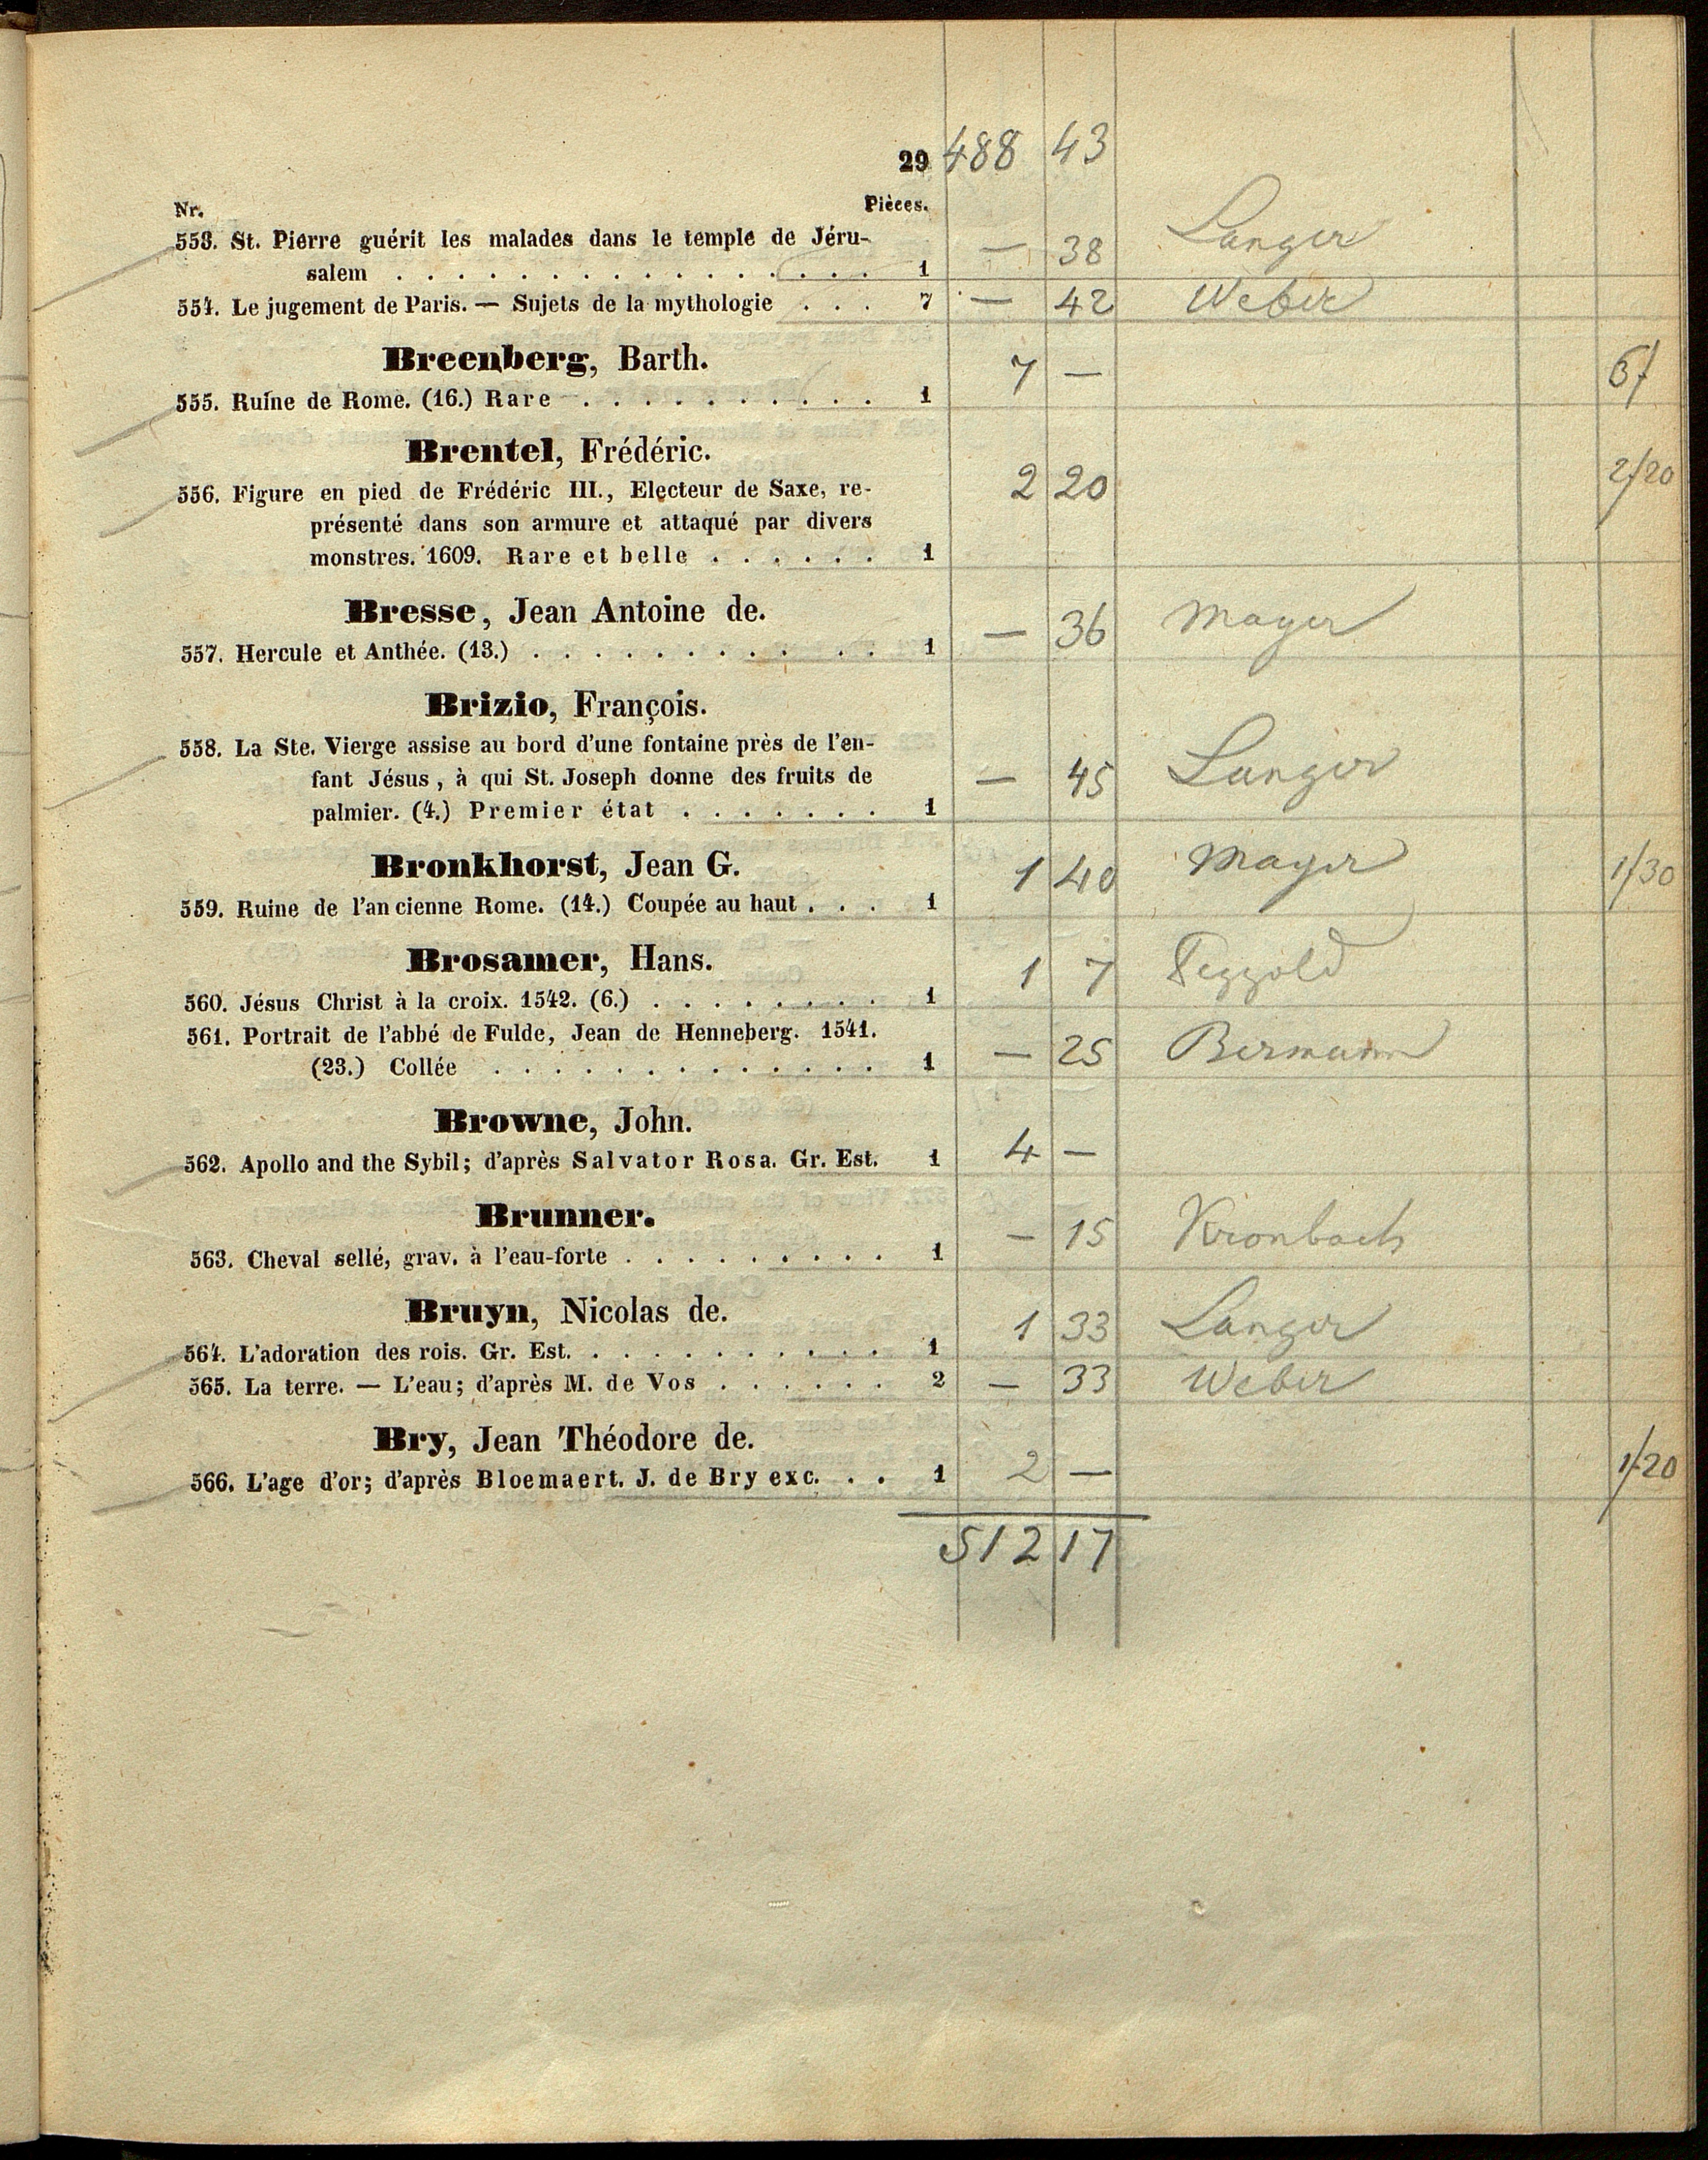 29 488 43
Nr. Pièces.
553. St. Pierre guérit les malades dans le temple de Jéru- — 38 Langer
salem . . . . . . . . . . . . . . . . 1
554. Le jugement de Paris. — Sujets de la mythologie . . . 7 — 42 Weber
Breenberg, Barth. 7 —
555. Ruine de Rome. (16.) Rare . . . . . . . . . . 1
Brentel, Frédéric.
556. Figure en pied de Frédéric III., Electeur de Saxe, re- 2 20 2/20
présenté dans son armure et attaqué par divers
monstres. 1609. Rare et belle . . . . . . 1
Bresse, Jean Antoine de.
557. Hercule et Anthée. (13.) . . . . . . . . . . . . 1 — 36 Mayer
Brizio, François.
558. La Ste. Vierge assise au bord d'une fontaine près de l'en-
fant Jésus, à qui St. Joseph donne des fruits de — 45 Langer
palmier. (4.) Premier état . . . . . . . 1
Bronkhorst, Jean G. 1 40 Mayer 1/30
559. Ruine de l'an cienne Rome. (14.) Coupée au haut . . . 1
Brosamer, Hans. 1 7
560. Jésus Christ à la croix. 1542. (6.) . . . . . . . . 1
561. Portrait de l'abbé de Fulde, Jean de Henneberg. 1541.
(23.) Collée . . . . . . . . . . . . . 1 — 25 Bermann
Browne, John.
562. Apollo and the Sybil; d'après Salvator Rosa. Gr. Est. 1 4 —
Brunner. — 15 Kronbach
563. Cheval sellé, grav. à l'eau-forte . . . . . . . . . 1
Bruyn, Nicolas de. 1 33 Langer
564. L'adoration des rois. Gr. Est. . . . . . . . . . . 1
565. La terre. — L'eau; d'après M. de Vos . . . . . . 2 — 33 Weber
Bry, Jean Théodore de.
566. L'age d'or; d'après Bloemaert. J. de Bry exc. . . 1 2 — 1/20
512 17